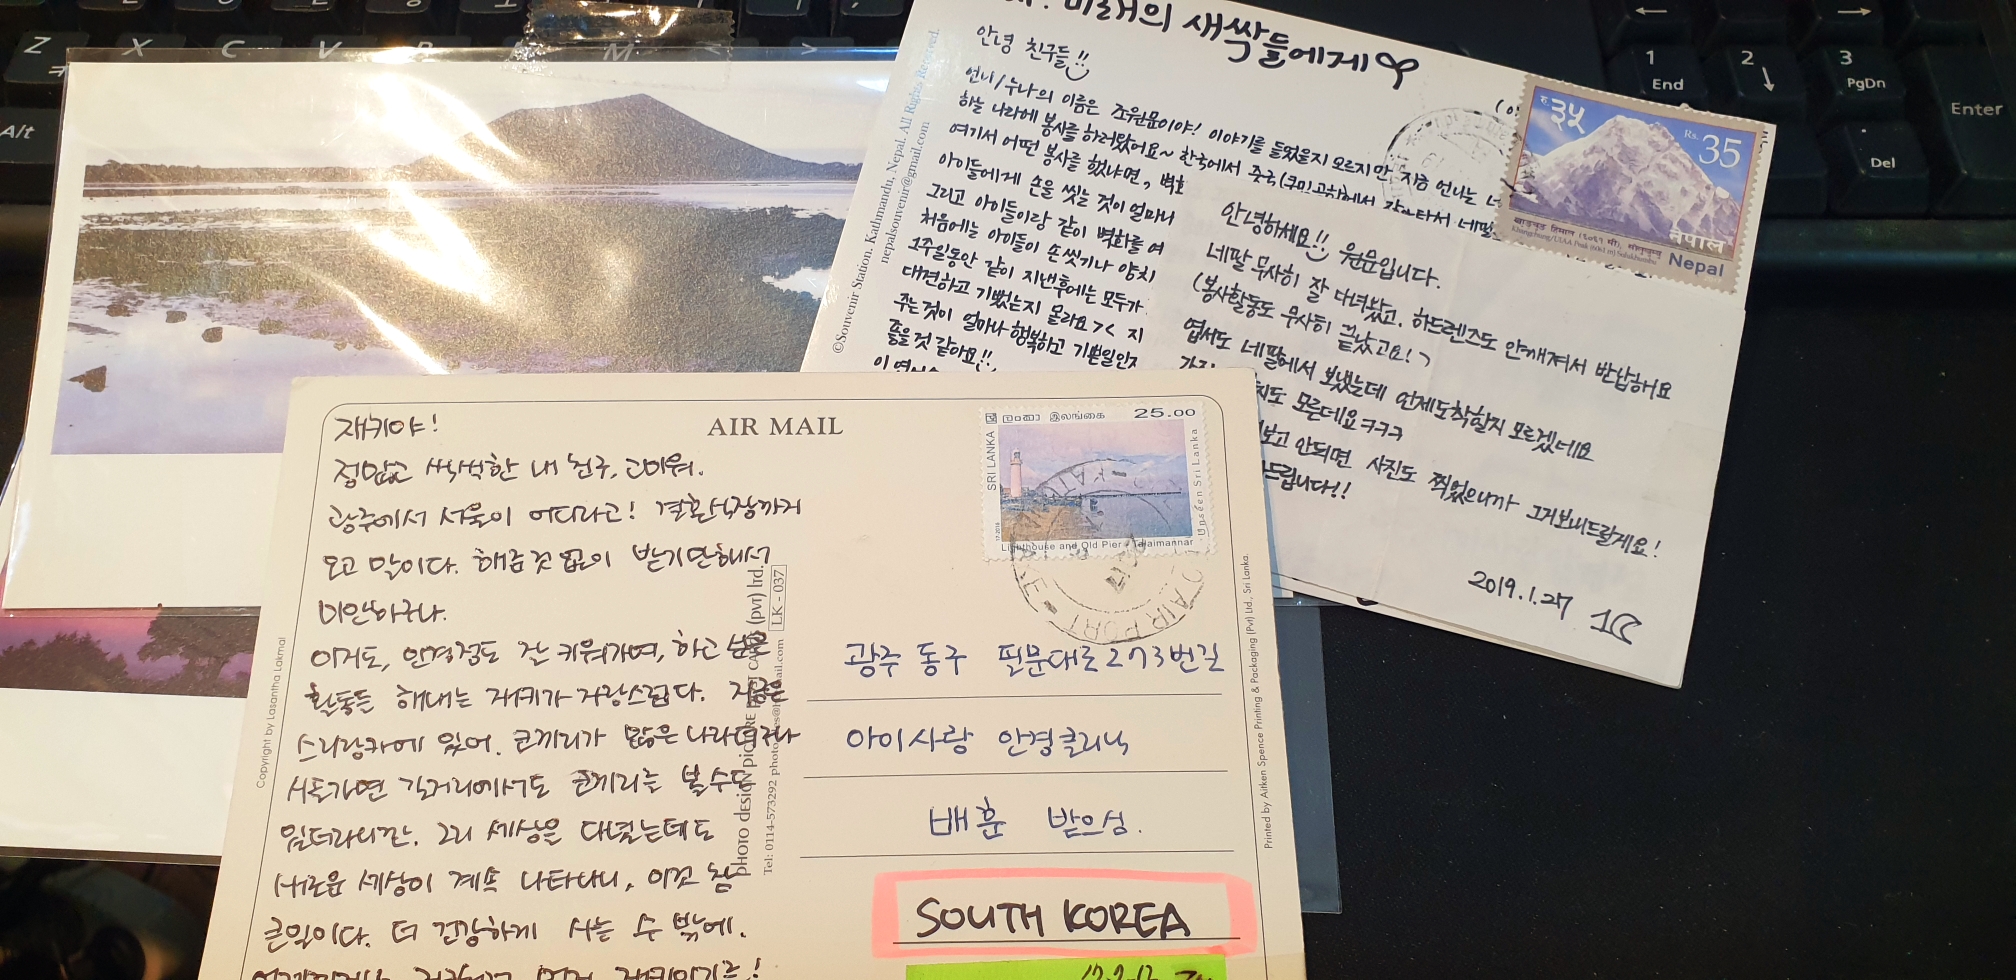 미래의 새싹들에게
안녕 친구들!!
언니/누나의 이름은 조원문이야! 이야기를 들었을지 모르지만, 지금 언니는 네
하늘 나라에 봉사를 하러왔어요~ 한국에서 중국(쿠미고츄)에서 갈아타서 네팔
여기서 어떤 봉사를 했냐면, 벽화
아이들에게 손을 씻는 것이 얼마나
그리고 아이들이랑 같이 벽화를
처음에는 아이들이 손씻기나 양치
1주일동안 같이 지낸후에는 모두가
대견하고 기뻤는지 몰라요 >< 지
주는것이 얼마나 행복하고 기쁜일인지
좋을것 같아요!!
©Souvenir Station. Kathmandu, Nepal. All Rights Reserved.
nepalsouvenir@gmail.com
३५
Rs. 35
नेपाल
Nepal
안녕하세요!! 원문입니다.
네팔 무사히 잘 다녀왔고. 하드렌즈도 안깨져서 반납해요
(봉사활동도 무사히 끝났고요!)
엽서도 네팔에서 보냈는데 언제도착할지 모르겠네요
도 모른데요ㅋㅋㅋ
보고 안되면 사진도 찍었으니까 그거보내드릴게요!
드립니다!!
2019.1.27
재키야!
정말고 싹싹한 내 친구, 고마워.
광주에서 서울이 어디라고! 결혼식장까지
오고 말이다. 해준것 없이 받기만해서
미안하구나.
이거도, 안경점도 잘 키워가며, 하고 싶은
활동들 해내는 재키가 자랑스럽다. 지금은
스리랑카에 있어. 코끼리가 많은 나라더구나
시도가면 길거리에서도 코끼리를 볼 수도
있더라니깐. 그리 세상을 다녔는데도
새로운 세상이 계속 나타나니, 이것 참
큰일이다. 더 건강하게 사는 수 밖에.
AIR MAIL
ශ්‍රී ලංකා இலங்கை 25.00
SRI LANKA
Unseen Sri Lanka
Lighthouse and Old Pier - Talaimannar
AIR PORT
광주 동구 필문대로 273번길
아이사랑 안경클리닉
배훈 받으심.
SOUTH KOREA
Copyright by Lasantha Lakmal
photo design PICTURE POST CARD (pvt) ltd.
LK - 037
Tel: 0114-573292
Printed by Aitken Spence Printing & Packaging (Pvt) Ltd., Sri Lanka.
Z X C V B M
Alt
1 End
2
3 PgDn
Enter
Del